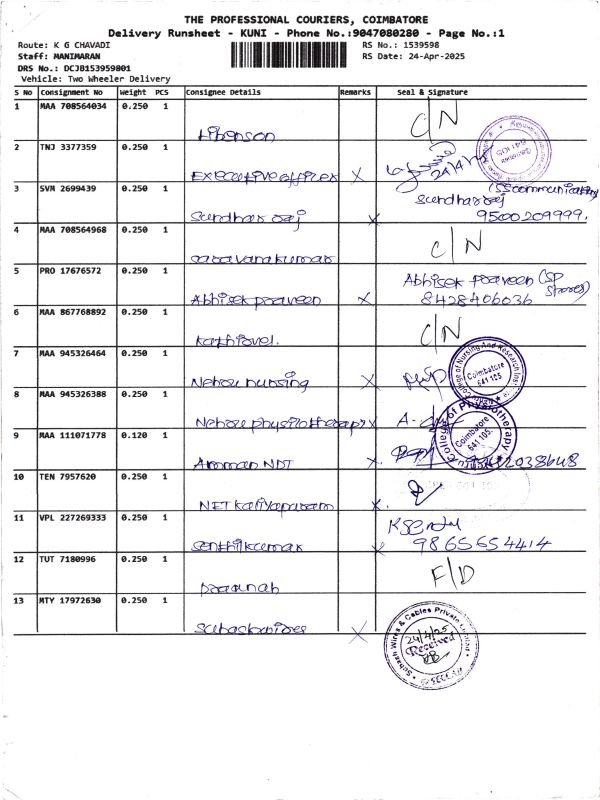 THE PROFESSIONAL COURIERS, COIMBATORE
Delivery Runsheet - KUNI - Phone No.:9047080280 - Page No.:1
Route: K G CHAVADI RS No.: 1539598
Staff: MANIMARAN RS Date: 24-Apr-2025
DRS No.: DCJB153959801
Vehicle: Two Wheeler Delivery
S No Consignment No Weight PCS Consignee Details Remarks Seal & Signature
1 MAA 708564034 0.250 1 C/N
2 TNJ 3377359 0.250 1
Executive officer x 24/4/25
3 SVM 2699439 0.250 1 (SS communication)
Sundhar raj x Sundhar raj
9500209999.
4 MAA 708564968 0.250 1 C/N
saravanakumar
5 PRO 17676572 0.250 1 Abhisek praveen (SP Stores)
Abhisek praveen x 8428406036
6 MAA 867768892 0.250 1 C/N
Kathirvel.
7 MAA 945326464 0.250 1 College of Nursing And Research Institute
Nehru nursing x Coimbatore 641 105
8 MAA 945326388 0.250 1 College of Physiotherapy
Nehru physiotherapy x Coimbatore 641 105.
9 MAA 111071778 0.120 1
Amman NDT x.
10 TEN 7957620 0.250 1
NET Kaliyapuram x.
11 VPL 227269333 0.250 1
Senthilkumar x 9865654414
12 TUT 7180996 0.250 1 F/D
13 MTY 17972630 0.250 1 Subash Wires & Cables Private Limited
x 24/4/25
Received